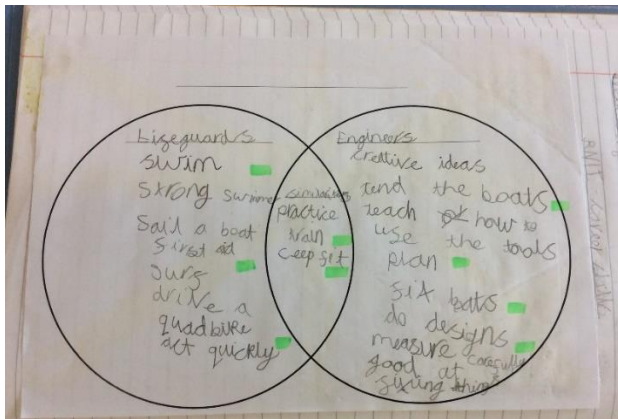 Lifeguards
swim
strong swimmer
Sail a boat
first aid
surf
drive a
quadbike
act quickly
similarities
practice
train
ceep fit
Engineers
creative ideas
tend the boats
teach how to
use the tools
plan
fix boats
do designs
measure carefully
good at
fixing things